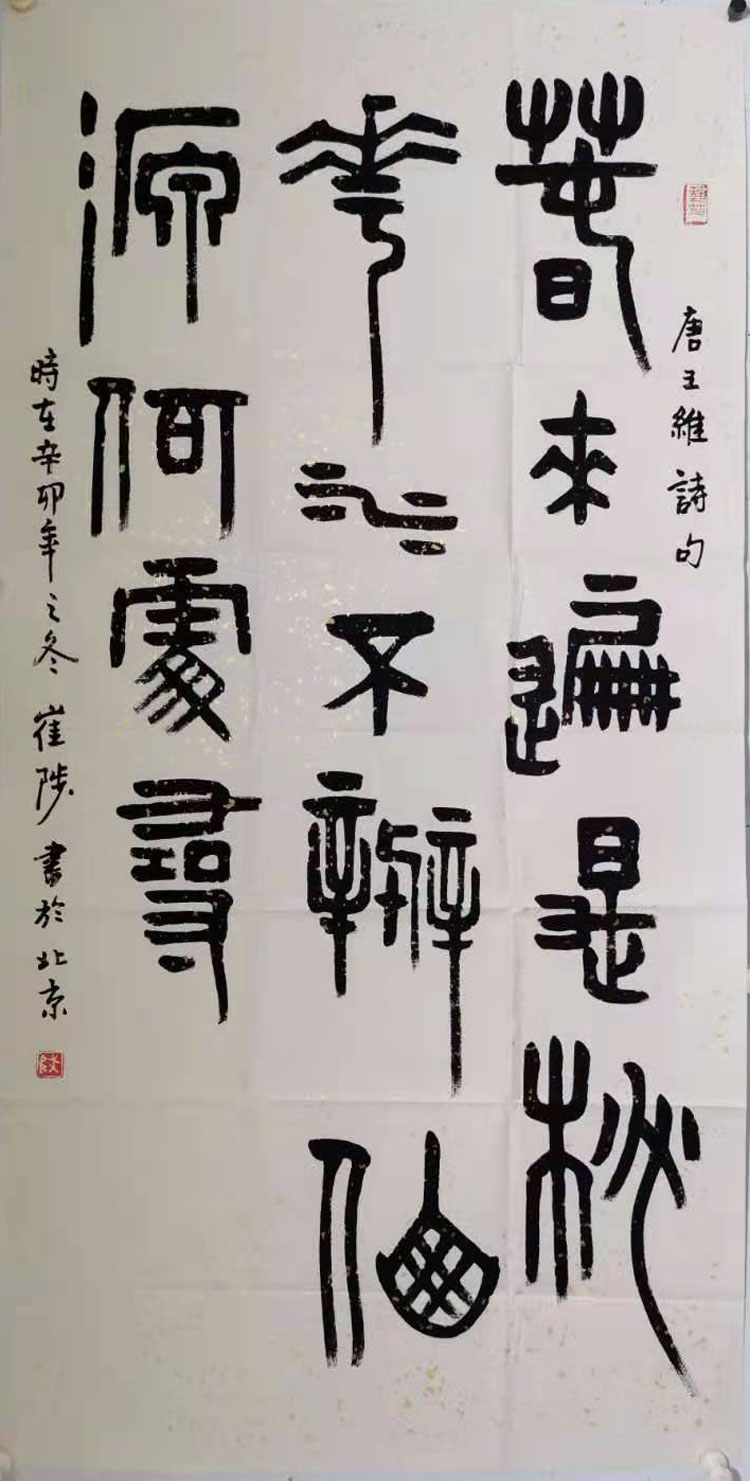 唐王維詩句
春來遍是桃
華水不辦仙
源何處尋
時在辛卯年之冬 崔陟書於北京